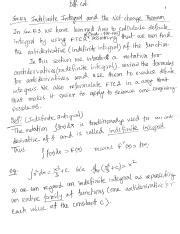 Diff Cal
Sec 5.4 Indefinite Integral and the Net Change Theorem
In Sec 5.3 we have learned how to calculate definite
integral by using FTC2 assuming that we can find
the antiderivative (indefinite integral) of the function.
In this section we introduce a notation for
antiderivative (indefinite integral), review the formulas
for antiderivatives and use them to evaluate definite
integrals. We also reformulate FTC2 in a way that
makes it easier to apply to science and engineering
problems.
Def: (Indefinite Integral)
The notation ∫f(x)dx is traditionally used for an anti
derivative of f and is called indefinite integral
Thus ∫f(x)dx = F(x) means F'(x) = f(x)
eg: ∫x²dx = x³/3 + C b/c d/dx (x³/3 + C) = x²
So we can regard an indefinite integral as representing
an entire family of functions (one antiderivative for
each value of the constant C).